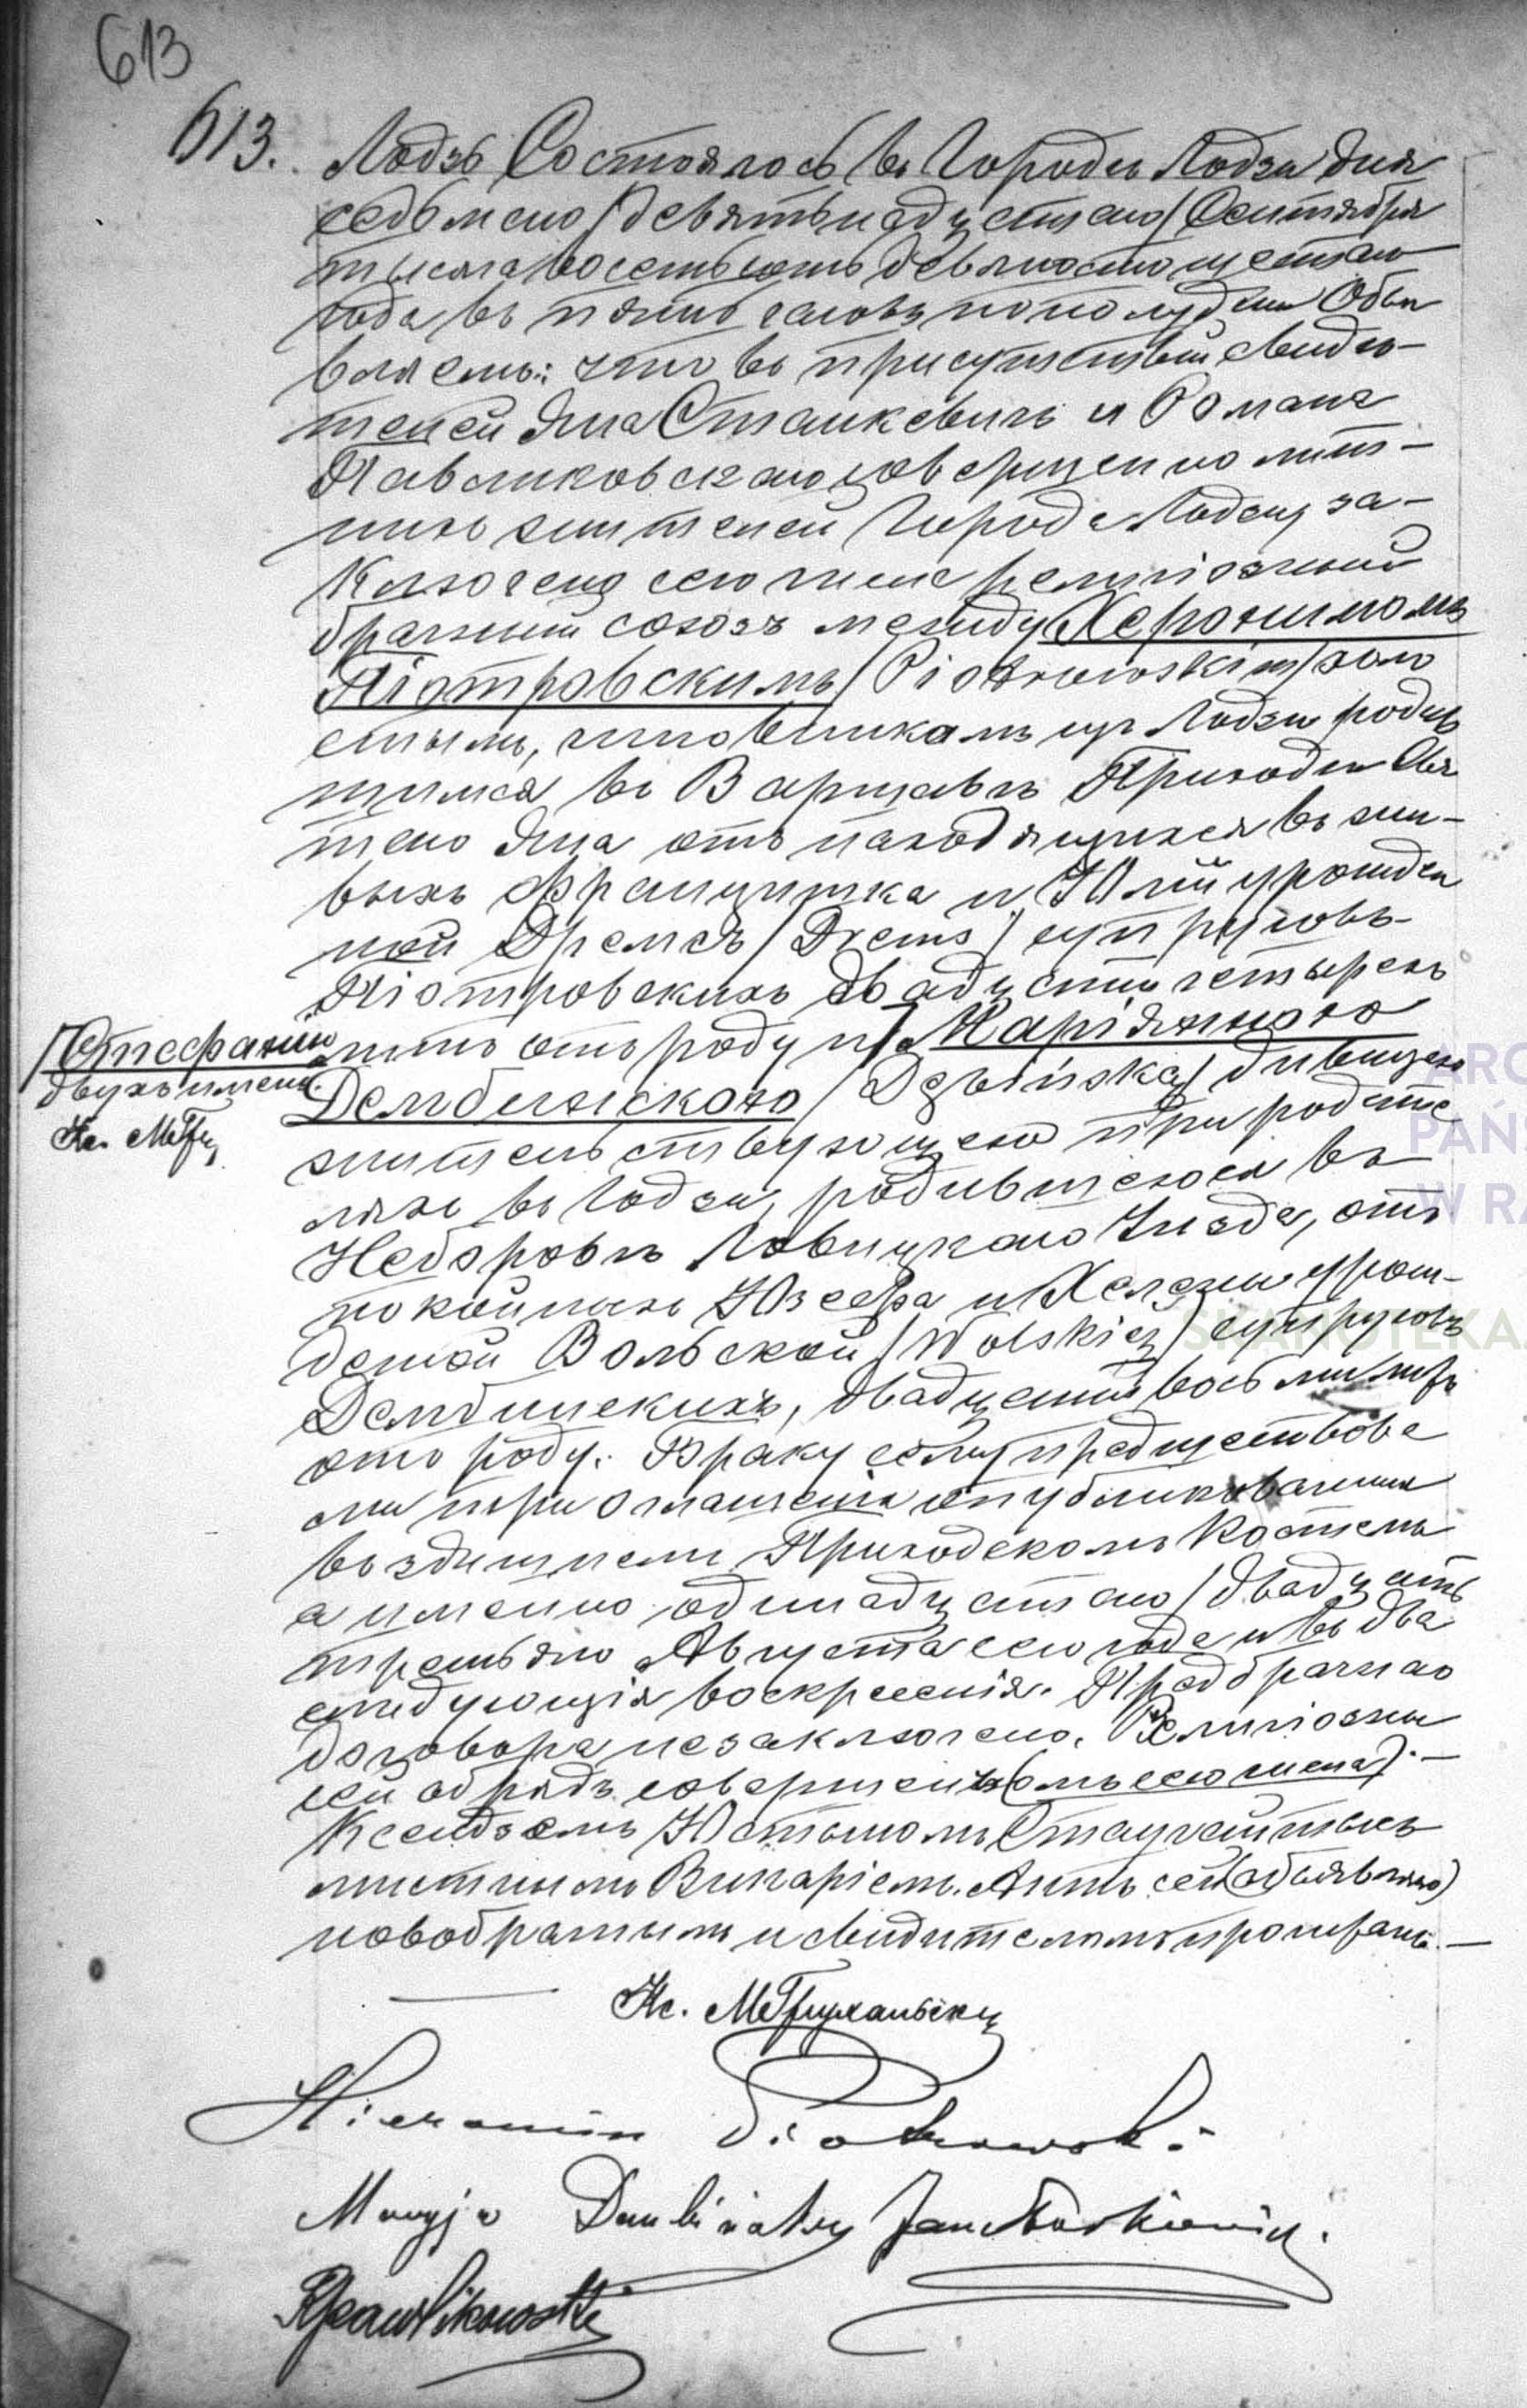 613
613. Лодзь Состоялось въ Городѣ Лодзи дня
седьмого/девятнадцатаго/Сентября
тысяча восемьсотъ девяносто шестаго
года въ пять часовъ пополудни Объя
вляемъ: что въ присутствіи свидѣ-
телей Яна Станкевичъ и Романа
Павликовскаго совершеннолѣт-
нихъ жителей Города Лодзи, за-
ключенъ сего числа религіозный
брачный союзъ между Херонимомъ
Піотровскимъ/Piotrowskim/холо
стымъ, чиновникомъ изъ Лодзи родив
шимся въ Варшавѣ Прихода Свя
таго Яна отъ находящихся въ жи-
выхъ Францишка и Юліи урожден
ной Дремсъ/Drems/супруговъ
Піотровскихъ двадцати четырехъ
лѣтъ отъ роду и Маріянною
/Стефаніи
двухъ именъ.
Кс. МГрц
Дембинскою/Dębińska/дѣвицею
жительствующею при родите
ляхъ въ Лодзи, родившеюся въ
Неборовѣ Ловицкаго Уѣзда, отъ
покойныхъ Юзефа и Хелены урож-
денной Вольской/Wolskich/супруговъ
Дембинскихъ, двадцати восьми лѣтъ
отъ роду. Браку сему предшествова
ли три оглашенія опубликованныя
въ здѣшнемъ Приходскомъ Костелѣ
а именно одинадцатаго/двадцать
третьяго Августа сего года и въ два
слѣдующія воскресенія. Предбрачнаго
договора незаключено. Религіозный
сей обрядъ совершенъ (
Ксендзомъ Юстыномъ
мѣстнымъ Викаріемъ. Актъ сей
новобрачнымъ и свидѣтелямъ прочитанъ.—
Hieronim Piotrowski
Maryja Dembińska Jan Stankiewicz.
RPawlikowski
ARC
PAŃS
W RA
SKANOTEKA.